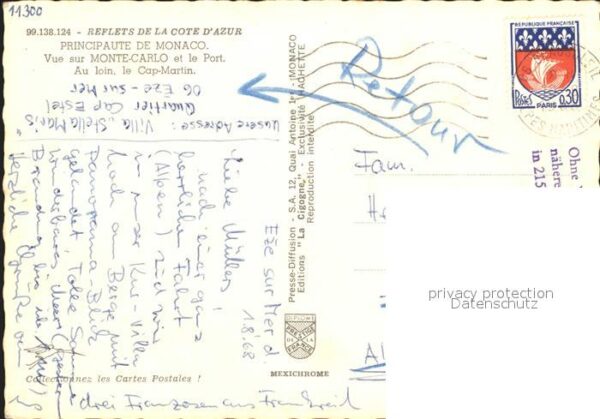 11.300
99.138.124 - REFLETS DE LA COTE D'AZUR
PRINCIPAUTE DE MONACO.
Vue sur MONTE-CARLO et le Port.
Au loin, le Cap-Martin.
Unsere Adresse: Villa "Stella Maris"
Quartier Cap Estel
06 Eze-sur Mer
Retour
Eze sur Mer d
1.8.68
Liebe Müllers
nach einer ganz
herrlichen Fahrt
(Alpen) sind wir
in unser Kur-Villa
hoch am Berge mit
Panorama-Blick
gelandet. Tolle
wunderbares Meer
Herzliche Grüße
drei Franzosen aus Frankreich
Collectionnez les Cartes Postales !
Presse-Diffusion - S.A. 12, Quai Antoine 1er - MONACO
Editions "La Cigogne," - Exclusivité HACHETTE
Reproduction interdite
DIPLOME
PRESTIGE
DE LA
FRANCE
MEXICHROME
REPUBLIQUE FRANÇAISE
Postes
0,30
PARIS
ALPES MARITIMES
Fam.
Ohne
nähere
in 215
privacy protection
Datenschutz